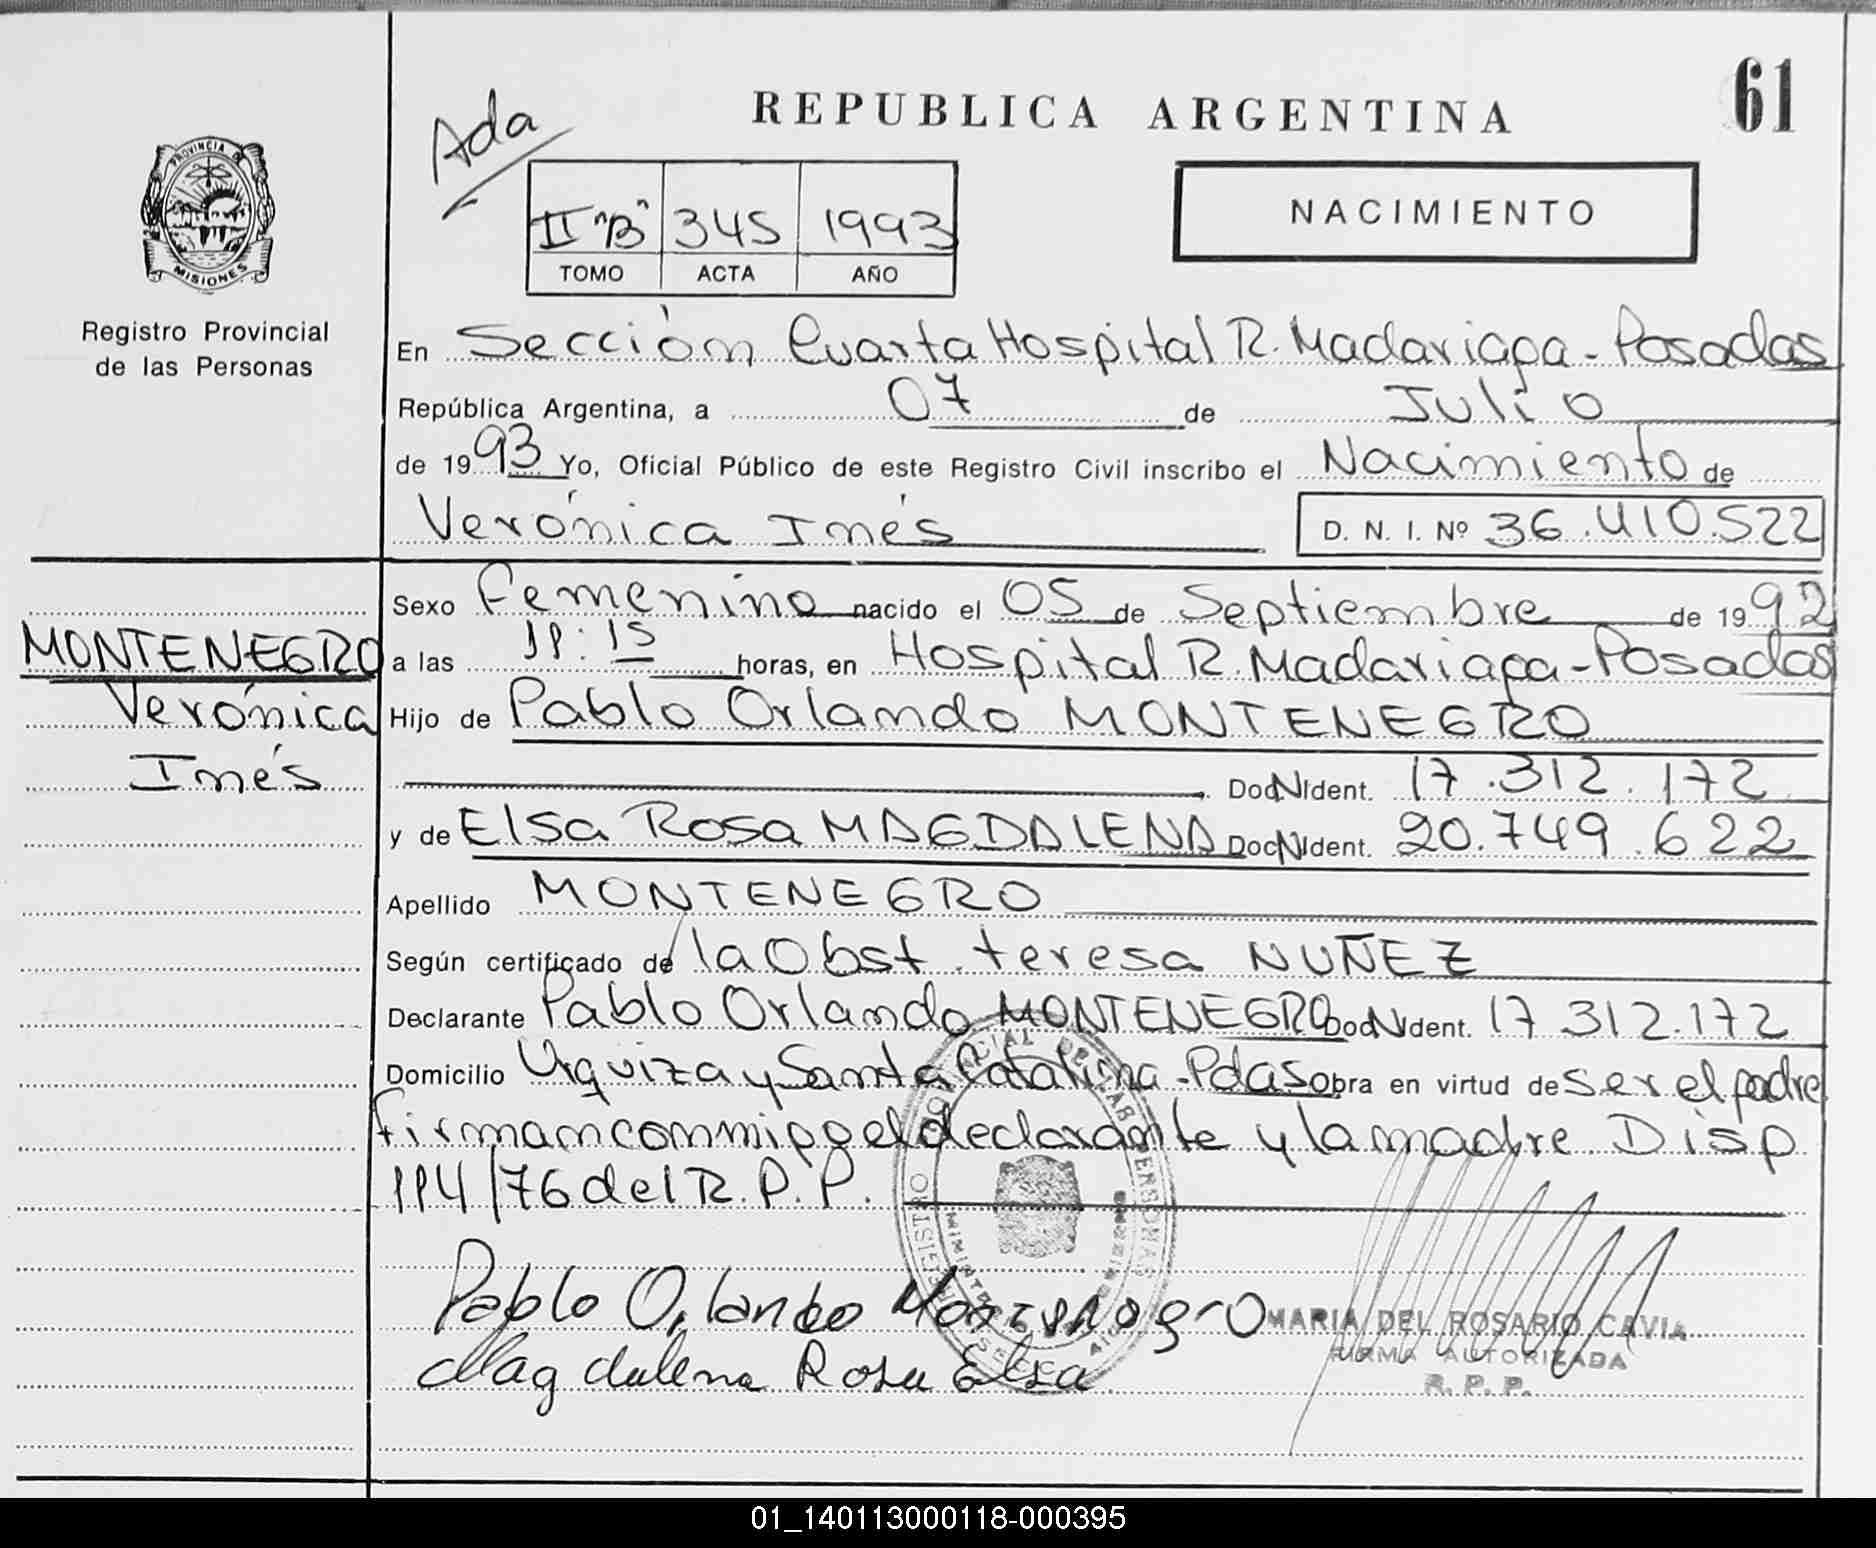 REPUBLICA ARGENTINA
61
Ada
II "B" 345 1993
TOMO ACTA AÑO
NACIMIENTO
PROVINCIA DE
MISIONES
Registro Provincial
de las Personas
En Sección Cuarta Hospital R. Madariaga - Posadas
República Argentina, a 07 de Julio
de 1993 Yo, Oficial Público de este Registro Civil inscribo el Nacimiento de
Verónica Inés D. N. I. Nº 36.410.522
MONTENEGRO
Verónica
Inés
Sexo Femenino nacido el 05 de Septiembre de 1992
a las 11:15 horas, en Hospital R. Madariaga - Posadas
Hijo de Pablo Orlando MONTENEGRO
Doc Ident. 17.312.172
y de Elsa Rosa MAGDALENA Doc Ident. 20.749.622
Apellido MONTENEGRO
Según certificado de la Obst. teresa NUÑEZ
Declarante Pablo Orlando MONTENEGRO Doc Ident. 17 312.172
Domicilio Urquiza y Santa Catalina - Pdas obra en virtud de ser el padre
firman conmigo el declarante y la madre Disp
114/76 del R. P. P.
Pablo Orlando Montenegro
Magdalena Rosa Elsa
MARIA DEL ROSARIO CAVIA
FIRMA AUTORIZADA
R. P. P.
01_140113000118-000395